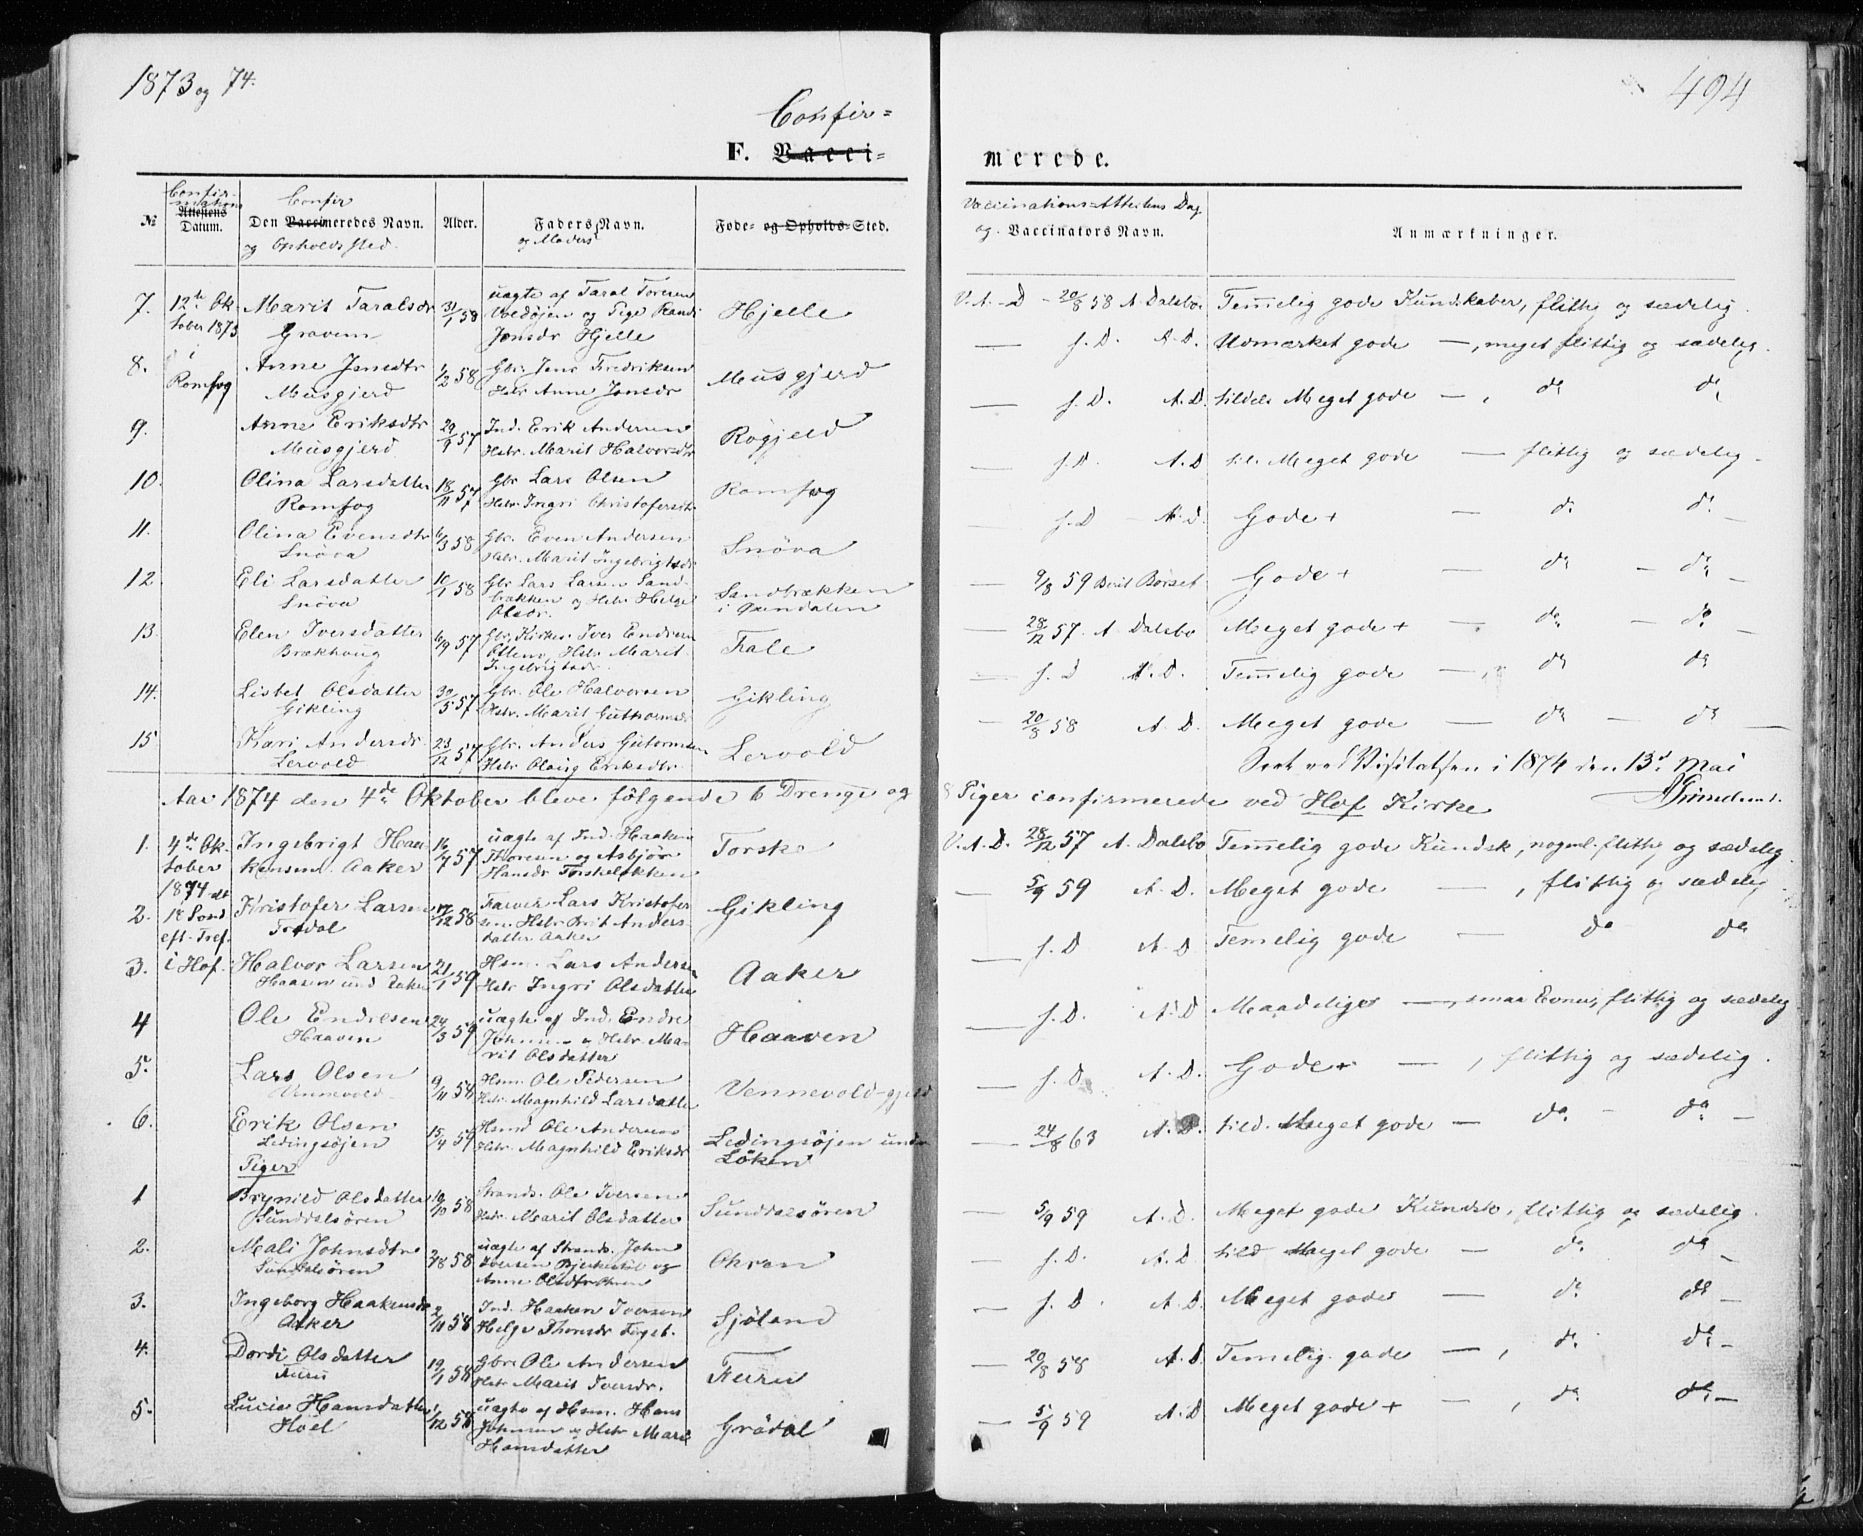 1873 og 74.
494
Confir=
F. Vacci=
merede.
№
Confir-
mations
Attestens
Datum.
Confir
Den Vaccineredes Navn.
og Opholdssted.
Alder.
Faders Navn.
og Moders
Føde- og Opholds-Sted.
Vaccinations-Attestens Dag
og Vaccinators Navn.
Anmærkninger.
7. 12te Ok- Marit Taralsdr 31/1 58 uægte af Taral Toresen Hjelle V.A.D. 20/8 58 A. Dalsbo. Temmelig gode Kundskaber, flittig og sædelig.
tober 1873 Gravem og Pige Randi
Jonsdr Hjelle
8. i Anne Jensdtr 1/2 58 Gbr. Jens Fredriksen Musgjerd — s.D. A.D. Udmærket gode —, meget flittig og sædelig.
Romfog Musgjerd Hstr Anne Jonsdr
9. Anne Eriksdtr 29/9 57 Ind. Erik Andersen Rogjeld — s.D. A.D. tildels Meget gode —, do do
Musgjerd Hstr. Marit Halvorsdtr
10. Olina Larsdatter 18/11 57 Gbr Lars Olsen Romfog — s.D. A.D til. Meget gode — flittig og sædelig
Romfog Hstr. Ingri Christofersdtr
11. Olina Evensdtr 6/3 58 Gbr. Even Andersen Snöva — s.D — A.D. Gode+ — do do —
Snöva Hstr. Marit Ingebrigtsdr
12. Eli Larsdatter 10/1 58 Gbr Lars Larsen Sand- Sandbrækken — 9/8 59 Berit Börset Gode+ — do — do —
Snöva brækken og Hstr Helge i Öxendalen
Olsdr.
13. Elen Iversdatter 6/9 57 Gbr. Kirkes. Iver Endresen Fale — 28/12 57. A Dalsbo Meget gode+ — do — do —
Brækhaug Hstr Marit
Ingebrigtsdr.
— s.D A.D. Temmelig gode —, do do
14. Lisbet Olsdatter 30/5 57 Gbr. Ole Halvorsen Gikling — 20/8 58 A.D. Meget gode — do — do —
Gikling Hstr. Marit Guttormsdr
15 Kari Andersdr 23/12 57 Gbr. Anders Gutormsen Lervold
Lervold Hstr Olaug Eriksdtr.
Seet ved Visitatsen i 1874 den 13de Mai
Aar 1874 den 4de Oktober bleve følgende 6 Drenge og 8 Piger confirmerede ved Hof Kirke
1. 4de Ok- Ingebrigt Haa- 16/7 57 uægte af Ind. Haaken Torske V.A.D. 28/12 57 A. Dalsbo Temmelig gode Kundsk, nogenl. flittig og sædelig.
tober kensen Aaker Thoresen og Asbjör
1874 dt Hansdr
2. 18 Sond Kristofer Larsen 17/12 58 Farver Lars Kristofer- Gikling — 5/9 59 A.D. Meget gode —, flittig og sædelig
eft. Tref. Tredal sen. Hstr Brit Anders-
datter Aaker
3. i Hof. Halvor Larsen 21/1 59 Hsm. Lars Andersen Aaker — s.D A.D Temelig gode — do do
Haasen und Aaker Hstr Ingri Olsdatter
4 Ole Endresen 24/3 59 uægte af Ind. Endre Haaven — s.D. A.D Maadelige —, smaa Evner, flittig og sædelig
Haaven Johnsen og Hstr Ma-
rit Olsdatter
5. Lars Olsen 9/11 54 Hsm. Ole Pedersen Vennevold-gjeld — s.D. A.D. Gode+ —, flittig og sædelig.
Vennevold Hstr. Magnhild Larsdatter
6. Erik Olsen 15/4 59 Hsmd Ole Andersens Ledingsöjen under — 24/8 63 A.D. tild. Meget gode — do — do —
Ledingsöjen Hstr. Magnhild Eriksdr Löken
Piger
1 Brynild Olsdatter 19/10 58 Strands. Ole Iversen Sunddalsören — 5/9 59 A.D. Meget gode Kundsk, flittig og sædelig.
Sunddalsören Hstr. Marit Olsdatter
2. Mali Johnsdtr 2/8 58 uægte af Strands. John Ohren — s.D. A.D. tild Meget gode — do do —
Sunddalsören Iversen og
Anne Olsdtr Ohren
3. Ingeborg Haakensdr 2/11 58 Ind. Haaken Iversen Sjöland — s.D. A.D. Meget gode — do do —
Aaker Helge Thorsdr
4. Dordi Olsdatter 19/1 58 Gbr Ole Andersen Furu — 20/8 58 A.D. Temelig gode —, do do —
Furu Hstr Marit Iversdr.
5. Lucie Hansdatter 1/12 58 uægte af Hsm. Hans Grödal — 5/9 59 A.D Meget gode+ —, do do —
Hoel Johnsen og Hstr Mari
Hansdatter